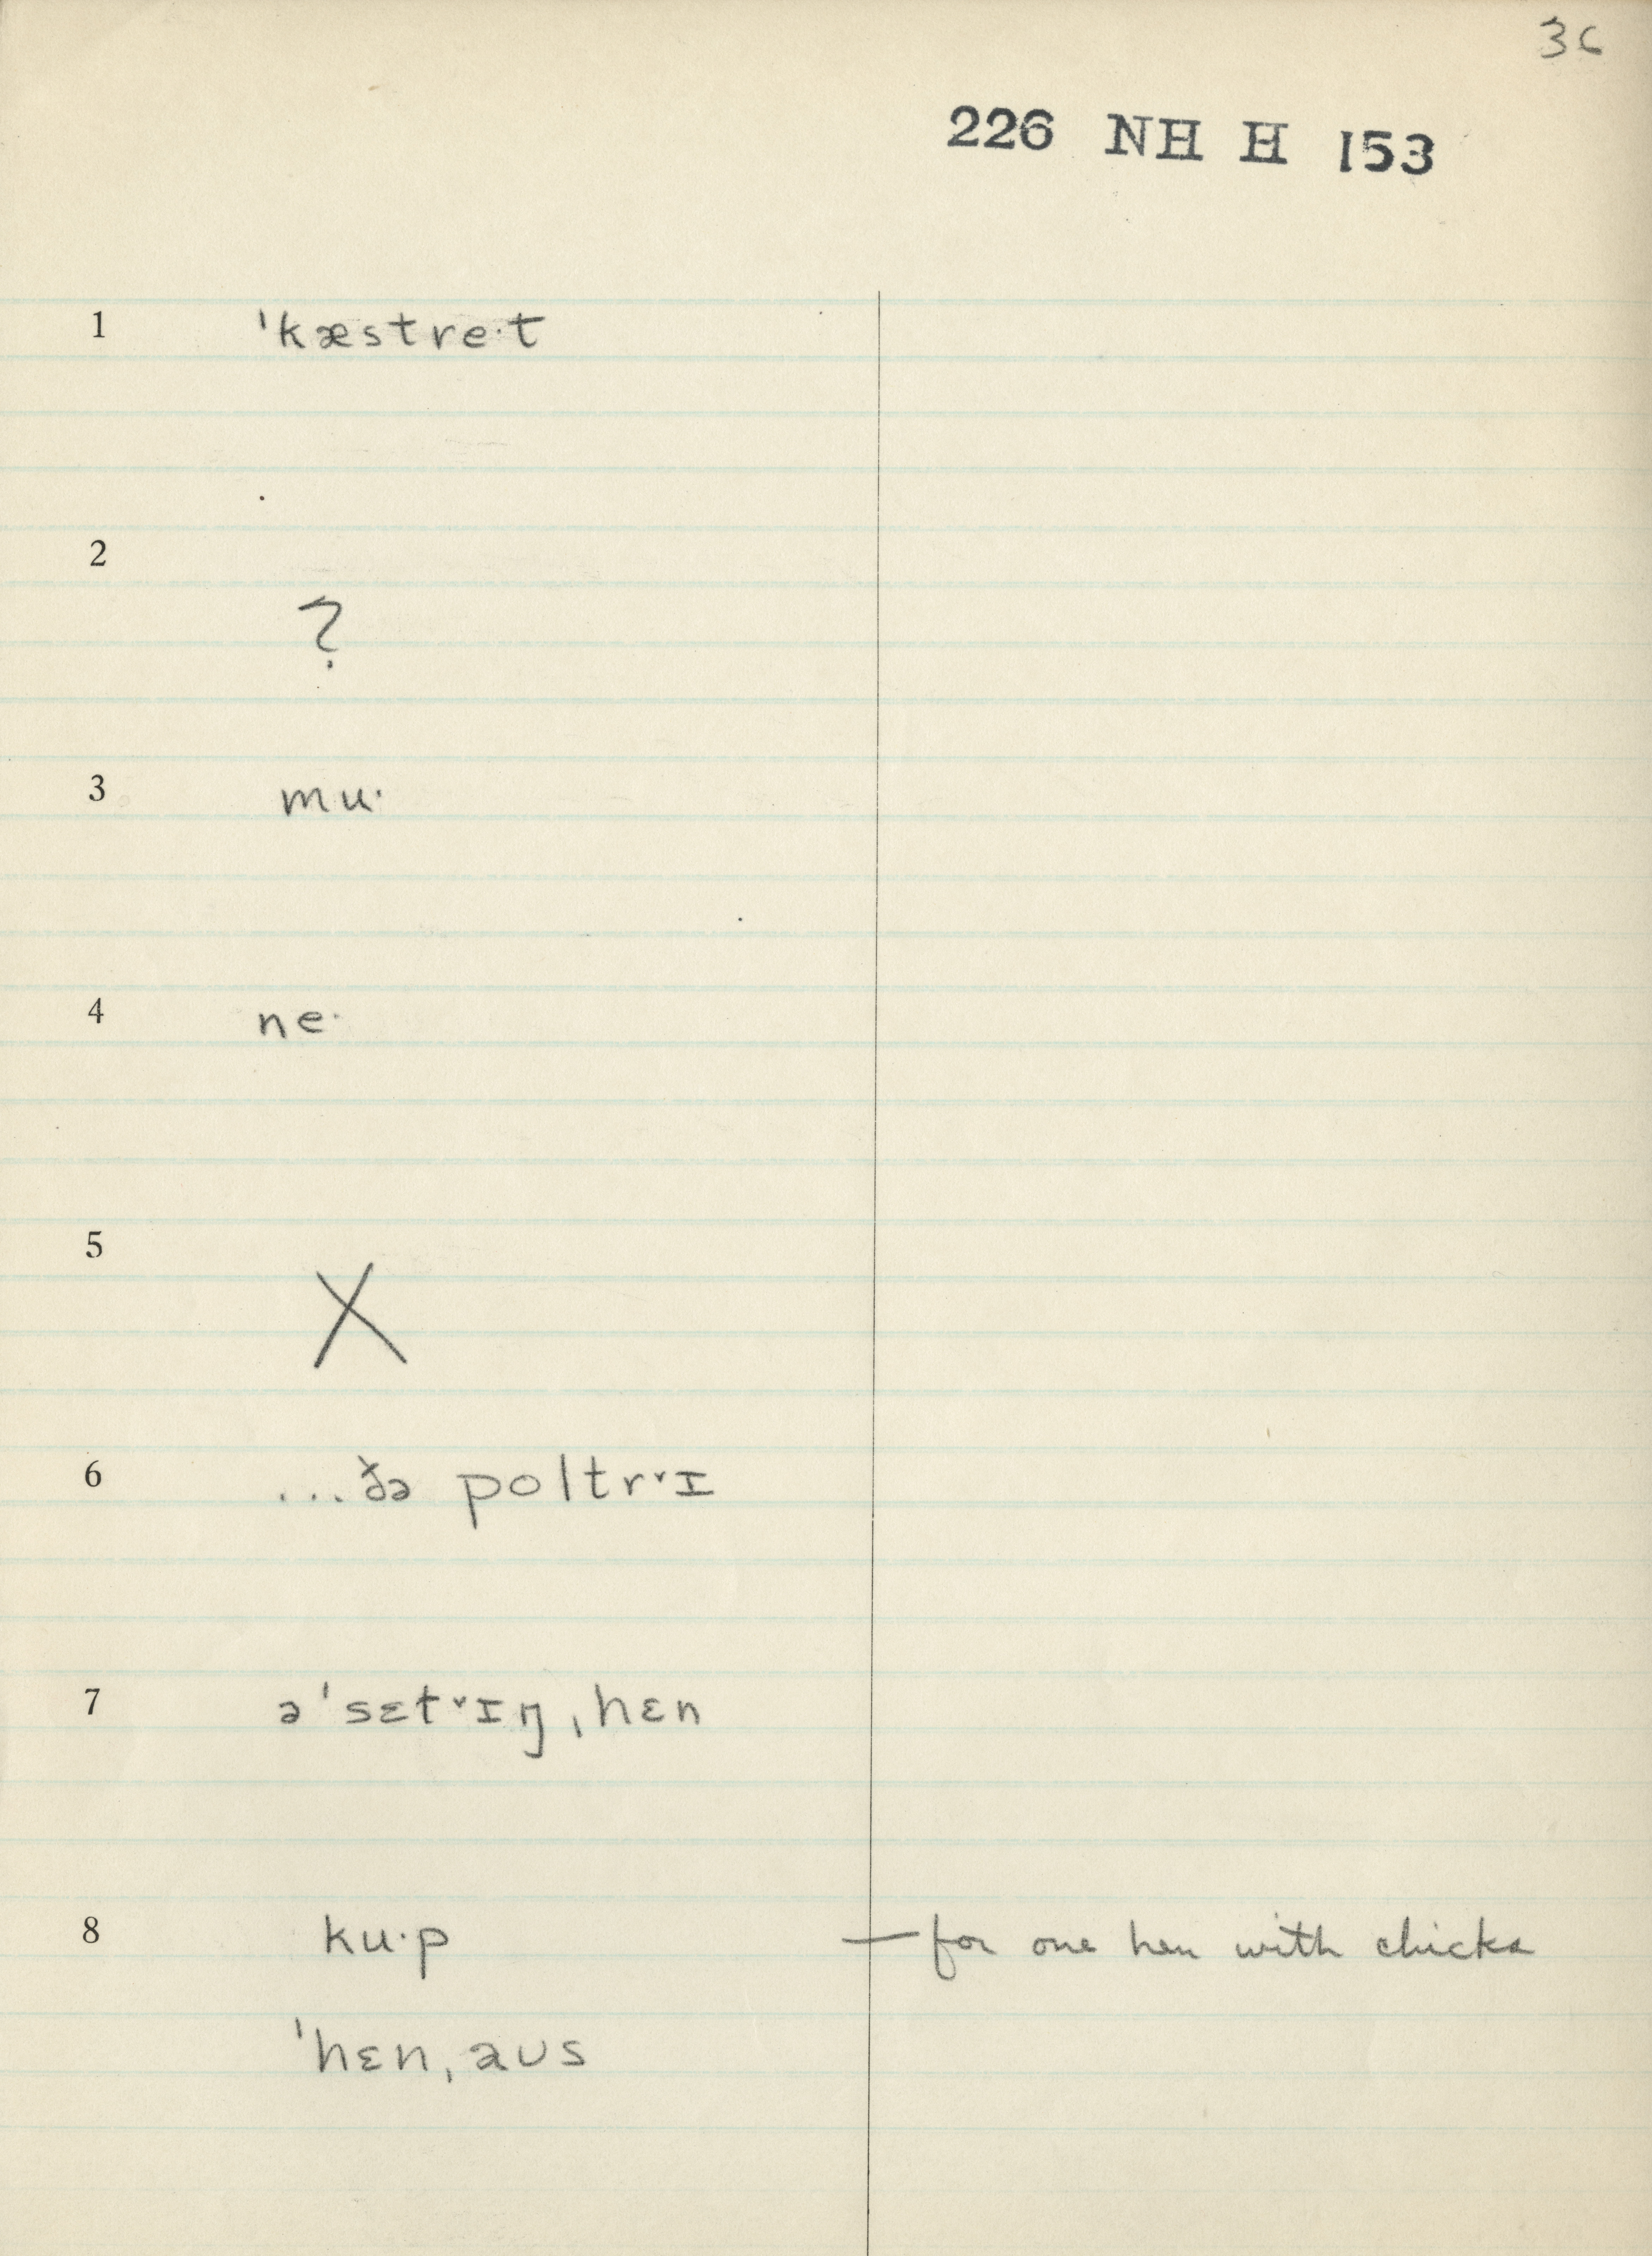 36
226 NH H 153
1 ˈkæstre·t
2
?
3 mu·
4 ne·
5
X
6 ...ðə poltr˅ɪ
7 əˈsɛt˅ɪŋˌhɛn
8 ku·p — for one hen with chicks
ˈhɛnˌaʊs